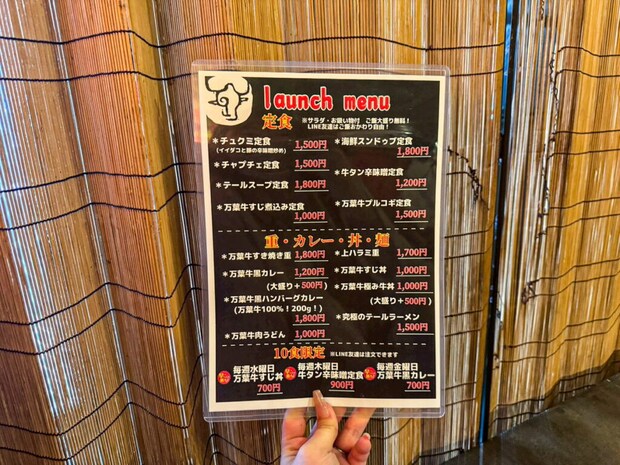 launch menu
定食 ※サラダ・お吸い物付 ご飯大盛り無料！
LINE友達はご飯おかわり自由！
＊チュクミ定食 1,500円
(イイダコと豚の辛味噌炒め)
＊チャプチェ定食 1,500円
＊テールスープ定食 1,800円
＊万葉牛すじ煮込み定食
1,000円
＊海鮮スンドゥブ定食
1,800円
＊牛タン辛味噌定食
1,200円
＊万葉牛プルコギ定食
1,500円
重・カレー・丼・麺
＊万葉牛すき焼き重 1,800円
＊万葉牛黒カレー 1,200円
(大盛り＋500円)
＊万葉牛黒ハンバーグカレー
(万葉牛100%！200g！)
1,800円
＊万葉牛肉うどん 1,000円
＊上ハラミ重 1,700円
＊万葉牛すじ丼 1,000円
＊万葉牛極み牛丼 1,000円
(大盛り＋500円)
＊究極のテールラーメン
1,500円
10食限定 ※LINE友達は注文できます
毎週水曜日
万葉牛すじ丼
700円
毎週木曜日
牛タン辛味噌定食
900円
毎週金曜日
万葉牛黒カレー
700円